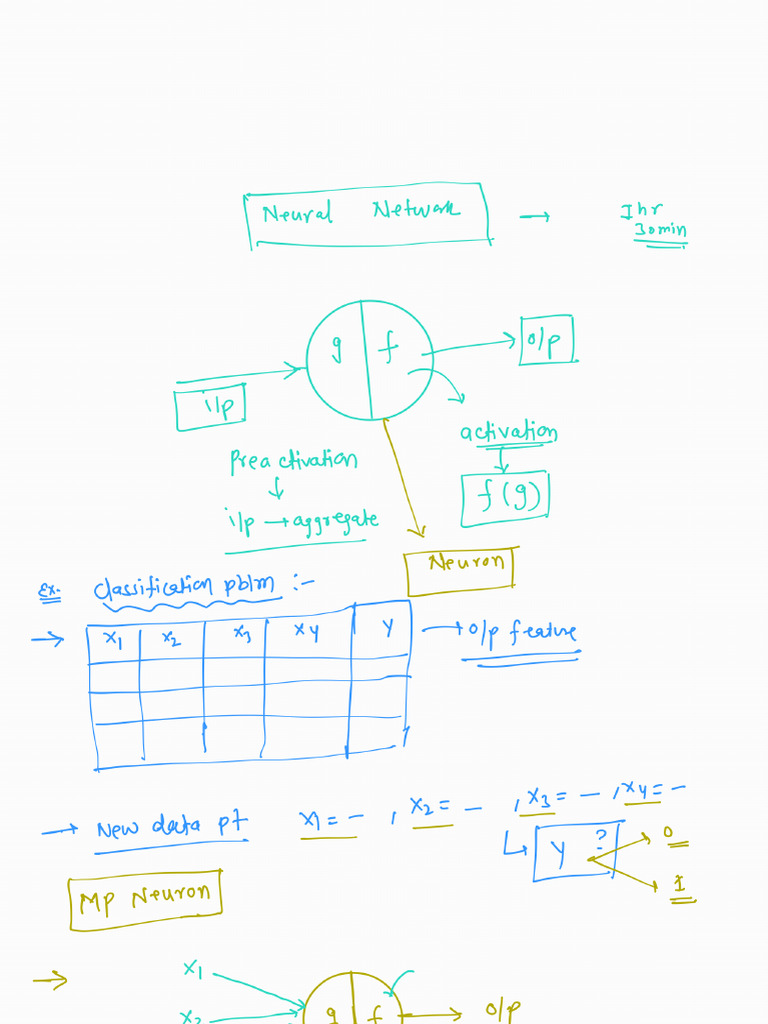 Neural Network → 1hr
30min
g f
o/p
i/p
activation
Preactivation
f(g)
i/p → aggregate
Neuron
Ex. Classification pblm :-
→ x1 x2 x3 x4 y → o/p feature
→ New data pt x1 = - , x2 = - , x3 = - , x4 = -
y ? 0
1
MP Neuron
→ x1
x2 g f → o/p